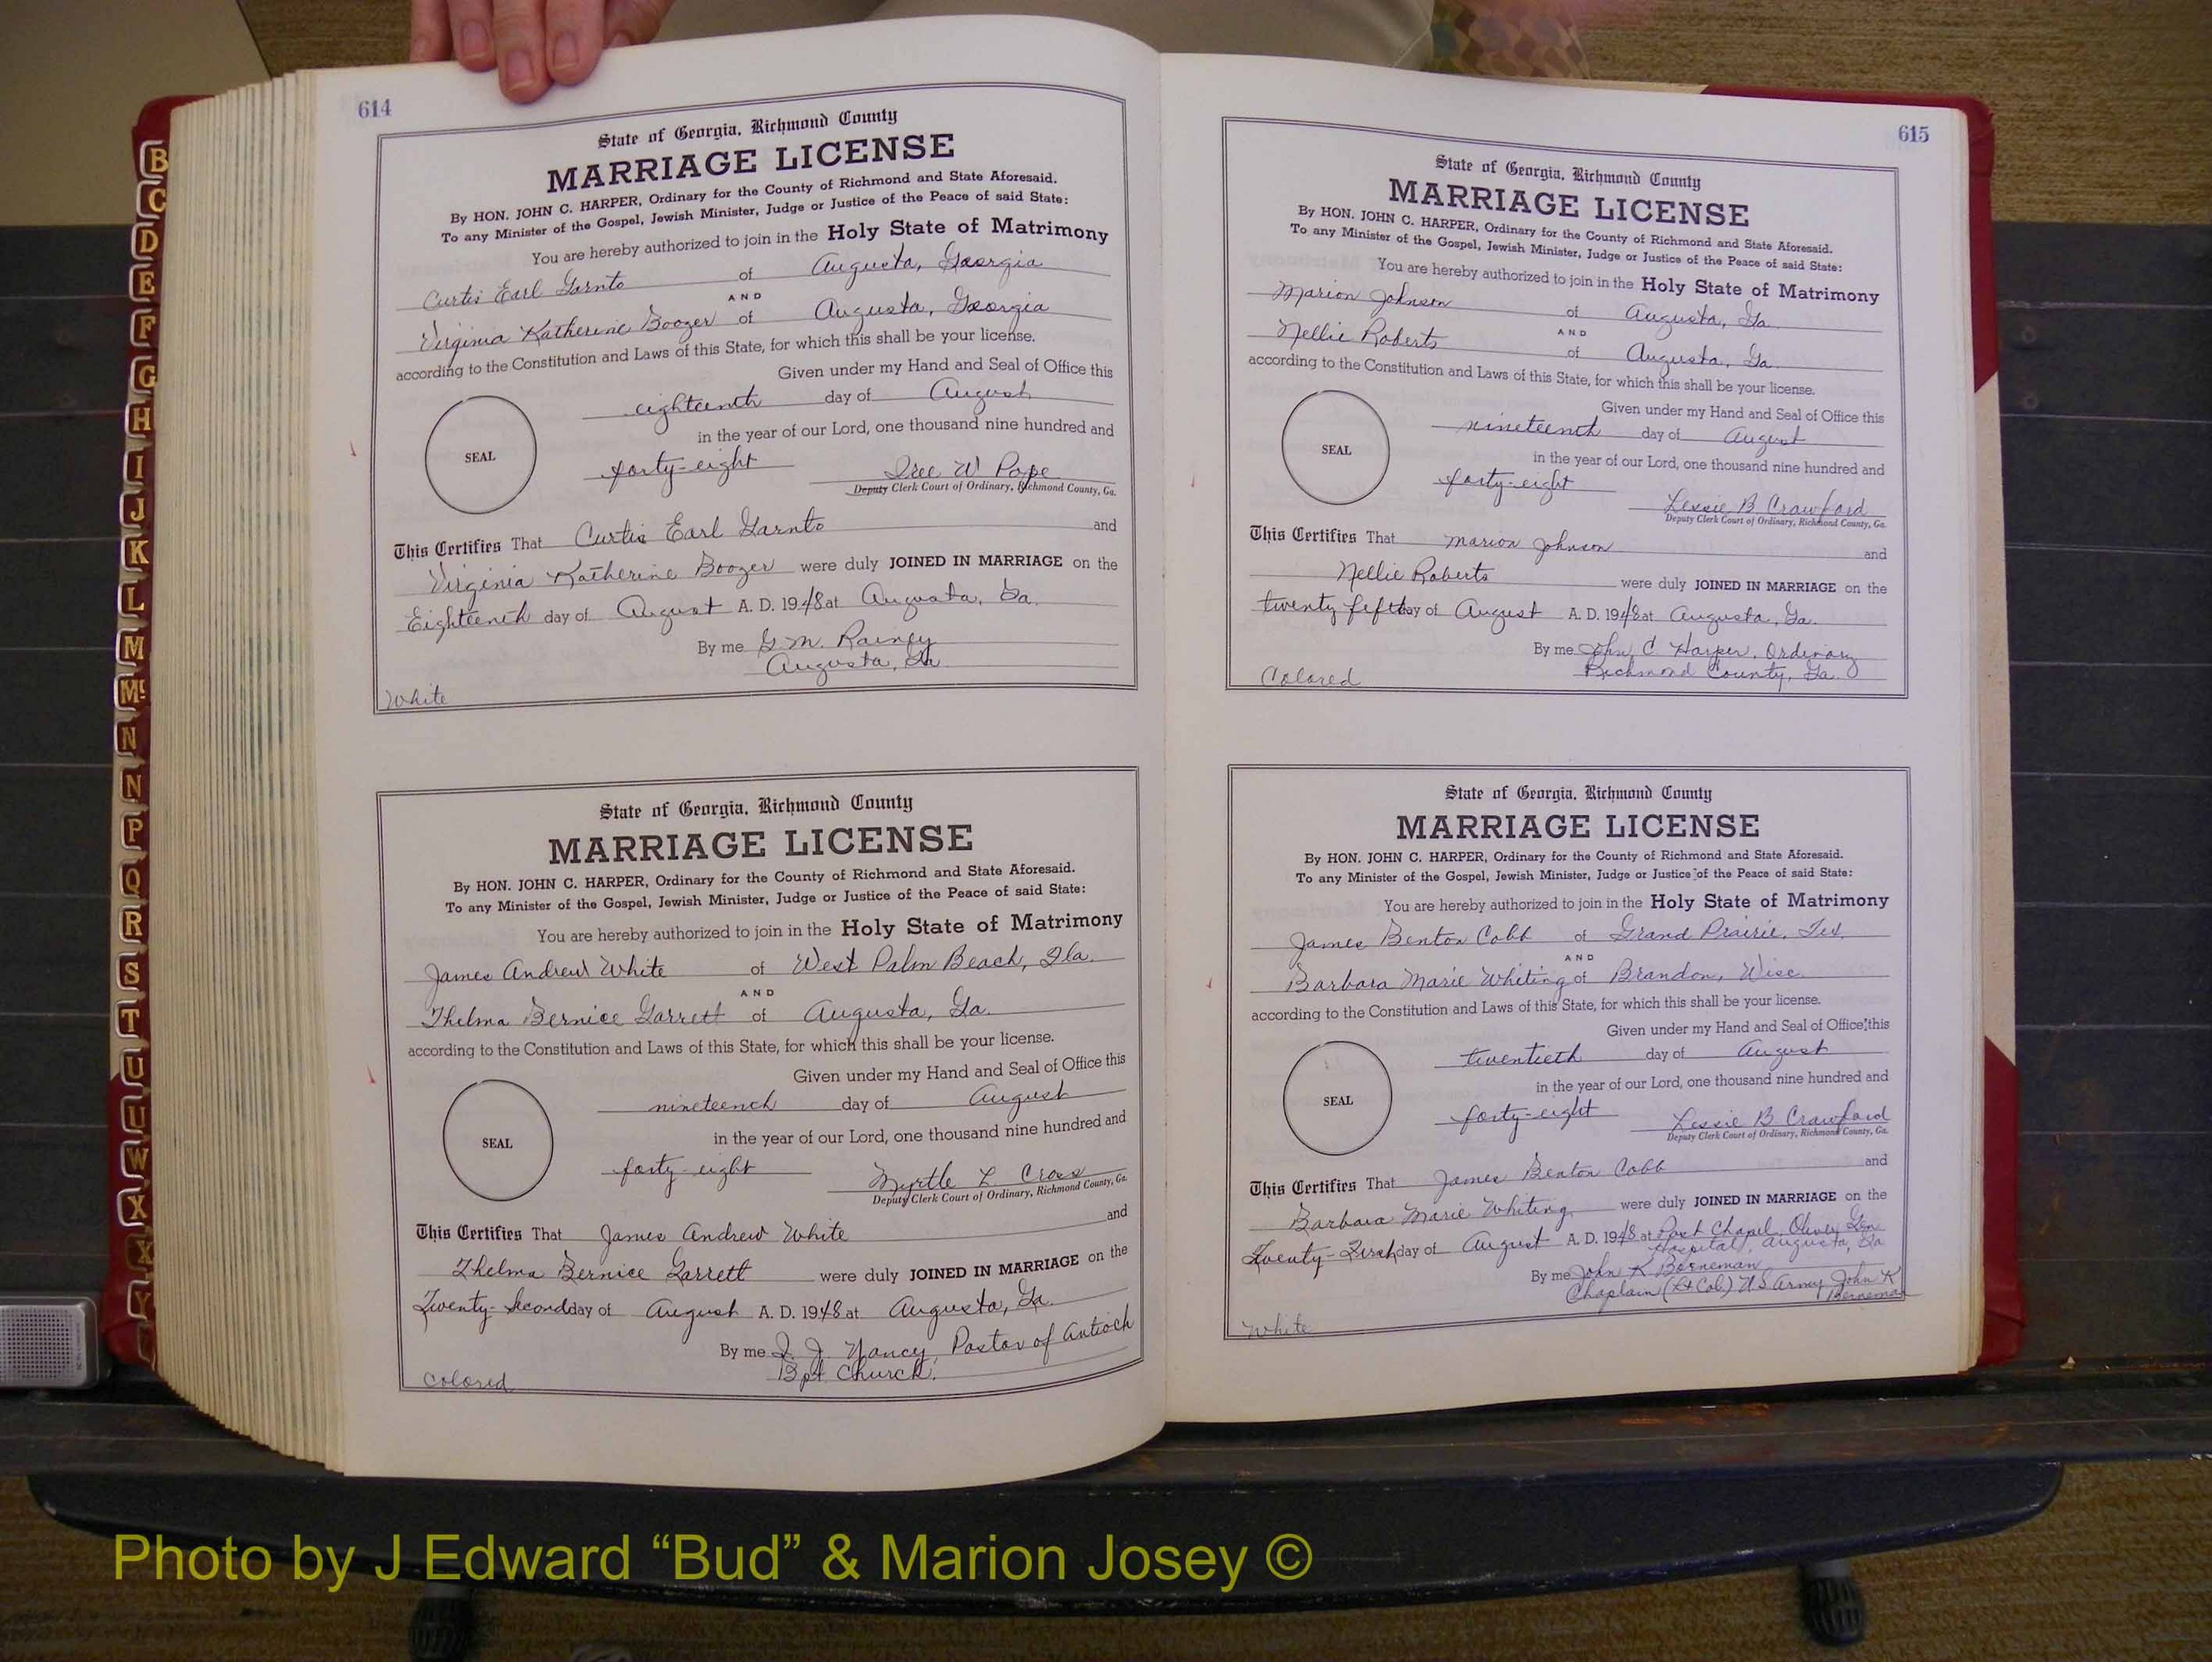 614
State of Georgia, Richmond County
MARRIAGE LICENSE
By HON. JOHN C. HARPER, Ordinary for the County of Richmond and State Aforesaid.
To any Minister of the Gospel, Jewish Minister, Judge or Justice of the Peace of said State:
You are hereby authorized to join in the Holy State of Matrimony
Curtis Earl Garnto of Augusta, Georgia
AND
Virginia Katherine Boozer of Augusta, Georgia
according to the Constitution and Laws of this State, for which this shall be your license.
Given under my Hand and Seal of Office this
eighteenth day of August
in the year of our Lord, one thousand nine hundred and
SEAL
forty-eight W Pope
Deputy Clerk Court of Ordinary, Richmond County, Ga.
This Certifies That Curtis Earl Garnto and
Virginia Katherine Boozer were duly JOINED IN MARRIAGE on the
Eighteenth day of August A. D. 1948 at Augusta, Ga.
By me G. M. Rainey
Augusta, Ga
White
State of Georgia, Richmond County
MARRIAGE LICENSE
By HON. JOHN C. HARPER, Ordinary for the County of Richmond and State Aforesaid.
To any Minister of the Gospel, Jewish Minister, Judge or Justice of the Peace of said State:
You are hereby authorized to join in the Holy State of Matrimony
James Andrew White of West Palm Beach, Fla.
AND
Thelma Bernice Garrett of Augusta, Ga.
according to the Constitution and Laws of this State, for which this shall be your license.
Given under my Hand and Seal of Office this
nineteenth day of August
in the year of our Lord, one thousand nine hundred and
SEAL
forty-eight Myrtle L. Cross
Deputy Clerk Court of Ordinary, Richmond County, Ga.
This Certifies That James Andrew White and
Thelma Bernice Garrett were duly JOINED IN MARRIAGE on the
Twenty-Second day of August A. D. 1948 at Augusta, Ga.
By me J. Yancy, Pastor of Antioch
Bpt Church.
Colored
615
State of Georgia, Richmond County
MARRIAGE LICENSE
By HON. JOHN C. HARPER, Ordinary for the County of Richmond and State Aforesaid.
To any Minister of the Gospel, Jewish Minister, Judge or Justice of the Peace of said State:
You are hereby authorized to join in the Holy State of Matrimony
Marion Johnson of Augusta, Ga.
AND
Nellie Roberts of Augusta, Ga.
according to the Constitution and Laws of this State, for which this shall be your license.
Given under my Hand and Seal of Office this
nineteenth day of August
in the year of our Lord, one thousand nine hundred and
SEAL
forty-eight Lessie B. Crawford
Deputy Clerk Court of Ordinary, Richmond County, Ga.
This Certifies That Marion Johnson and
Nellie Roberts were duly JOINED IN MARRIAGE on the
twenty fifth day of August A. D. 1948 at Augusta, Ga.
By me John C Harper, Ordinary
Richmond County, Ga.
Colored
State of Georgia, Richmond County
MARRIAGE LICENSE
By HON. JOHN C. HARPER, Ordinary for the County of Richmond and State Aforesaid.
To any Minister of the Gospel, Jewish Minister, Judge or Justice of the Peace of said State:
You are hereby authorized to join in the Holy State of Matrimony
James Benton Cobb of Grand Prairie, Tex.
AND
Barbara Marie Whiting of Brandon, Wisc.
according to the Constitution and Laws of this State, for which this shall be your license.
Given under my Hand and Seal of Office this
twentieth day of August
in the year of our Lord, one thousand nine hundred and
SEAL
forty-eight Lessie B Crawford
Deputy Clerk Court of Ordinary, Richmond County, Ga.
This Certifies That James Benton Cobb and
Barbara Marie Whiting were duly JOINED IN MARRIAGE on the
Twenty-First day of August A. D. 1948 at Post Chapel, Oliver Gen
Hospital, Augusta, Ga
By me John K Borneman
Chaplain (Lt Col.) U S Army John K
Borneman
White
B
C
D
E
F
G
H
I
J
K
L
M
Mc
N
N
P
Q
R
S
T
U
U
W
X
X
Y
Photo by J Edward “Bud” & Marion Josey ©